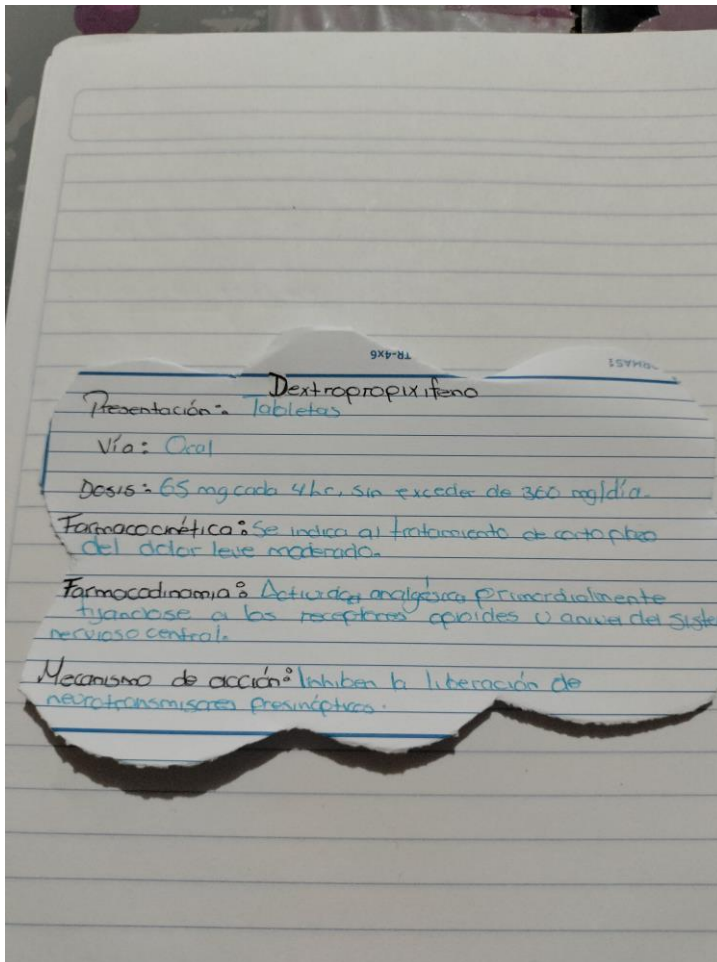 TR-4x6
Dextropropixifeno
Presentación: Tabletas
Vía: Oral
Dosis: 65 mg cada 4hr, sin exceder de 360 mg/día.
Farmacocinética: Se indica al tratamiento de corto plazo
del dolor leve moderado.
Farmocodinamia: Actividad analgésica primordialmente
fijandose a los receptores opioides a nivel del siste
nervioso central.
Mecanismo de acción: Inhiben la liberación de
neurotransmisores presinápticos.